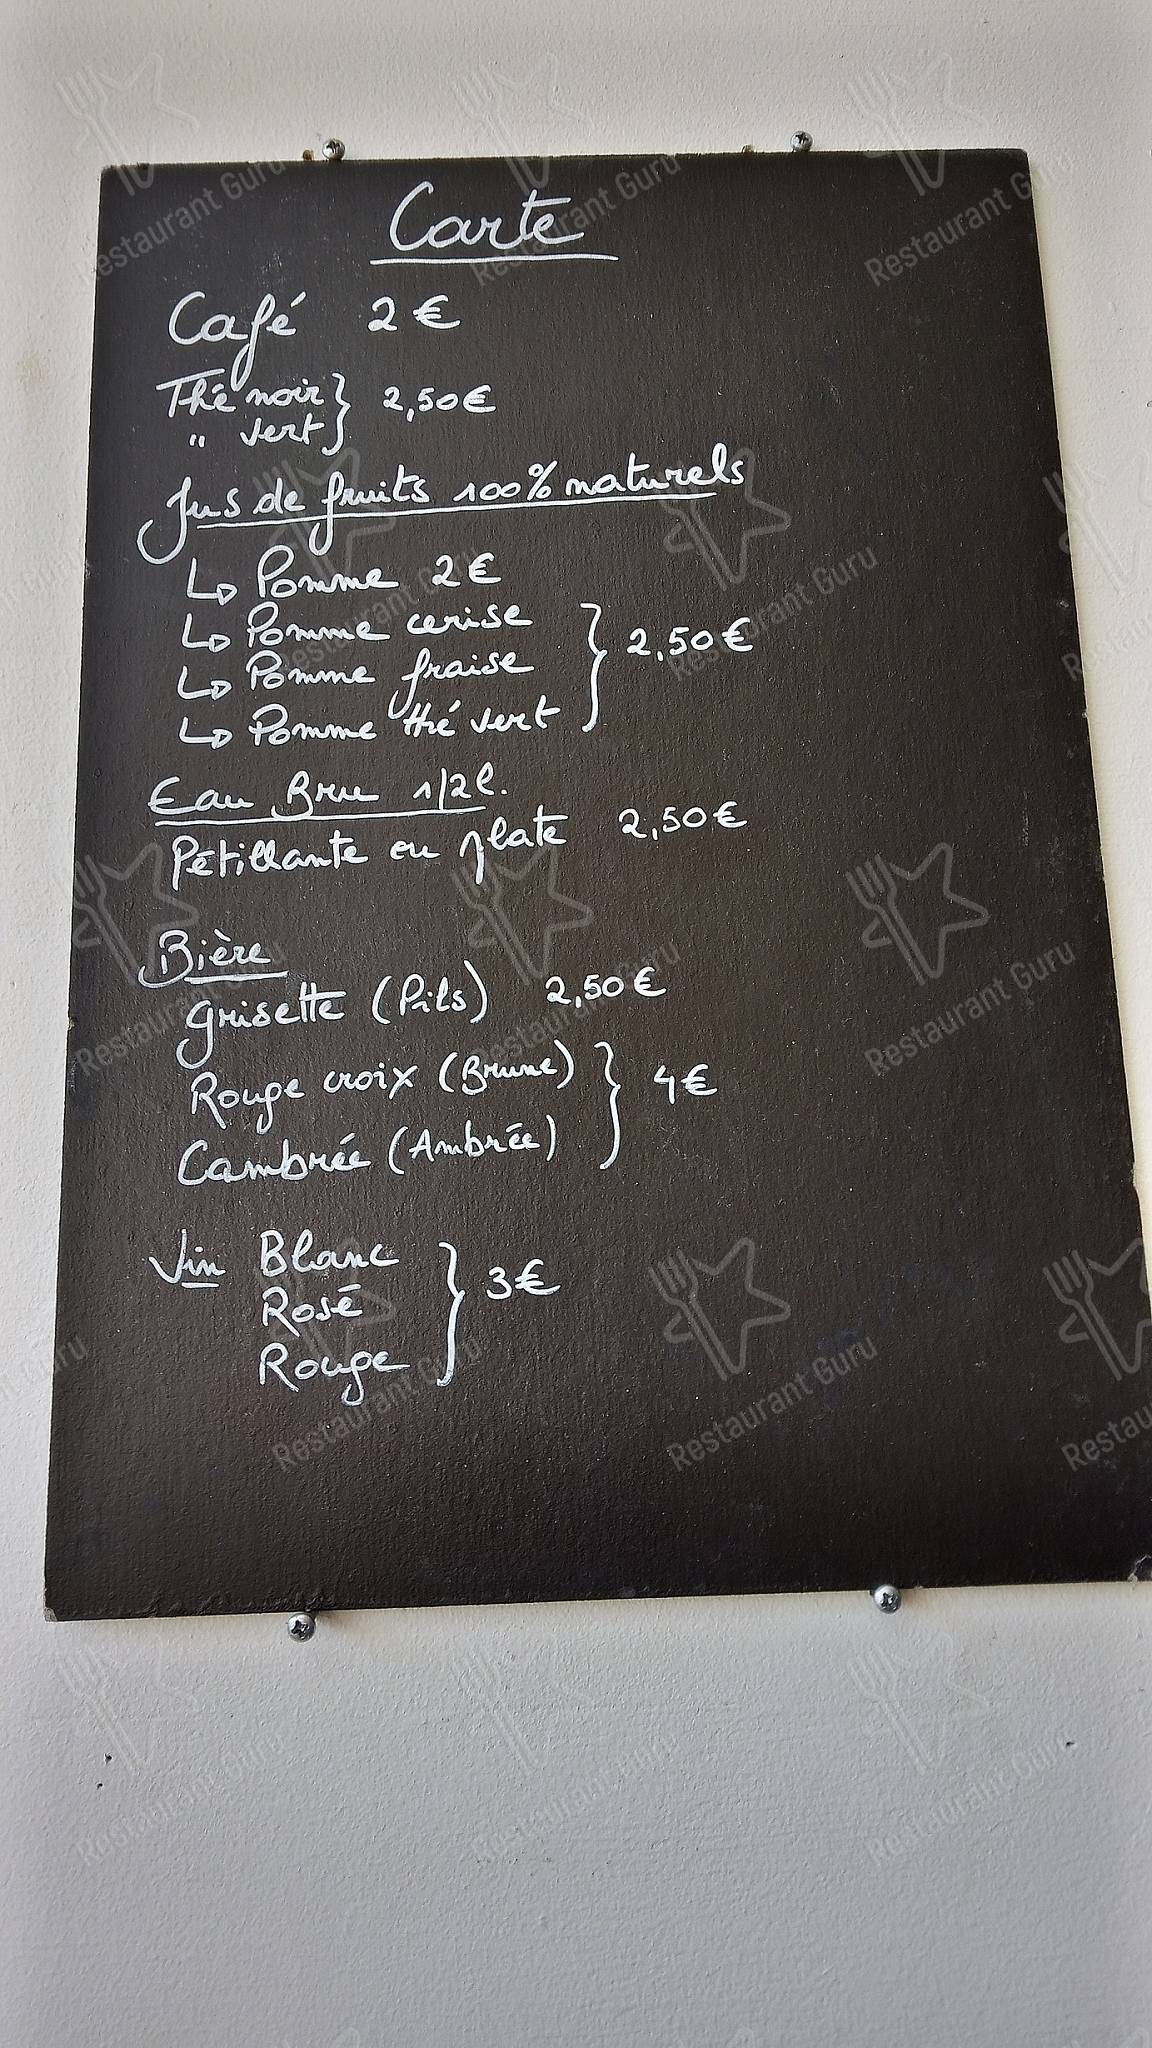 Carte
Café 2€
Thé noir } 2,50€
" vert
Jus de fruits 100% naturels
↳ Pomme 2€
↳ Pomme cerise
↳ Pomme fraise } 2,50€
↳ Pomme thé vert
Eau Bru 1/2l.
Pétillante ou plate 2,50€
Bière
Grisette (Pils) 2,50€
Rouge croix (Brune) } 4€
Cambrée (Ambrée)
Vin Blanc
Rosé } 3€
Rouge
Restaurant Guru